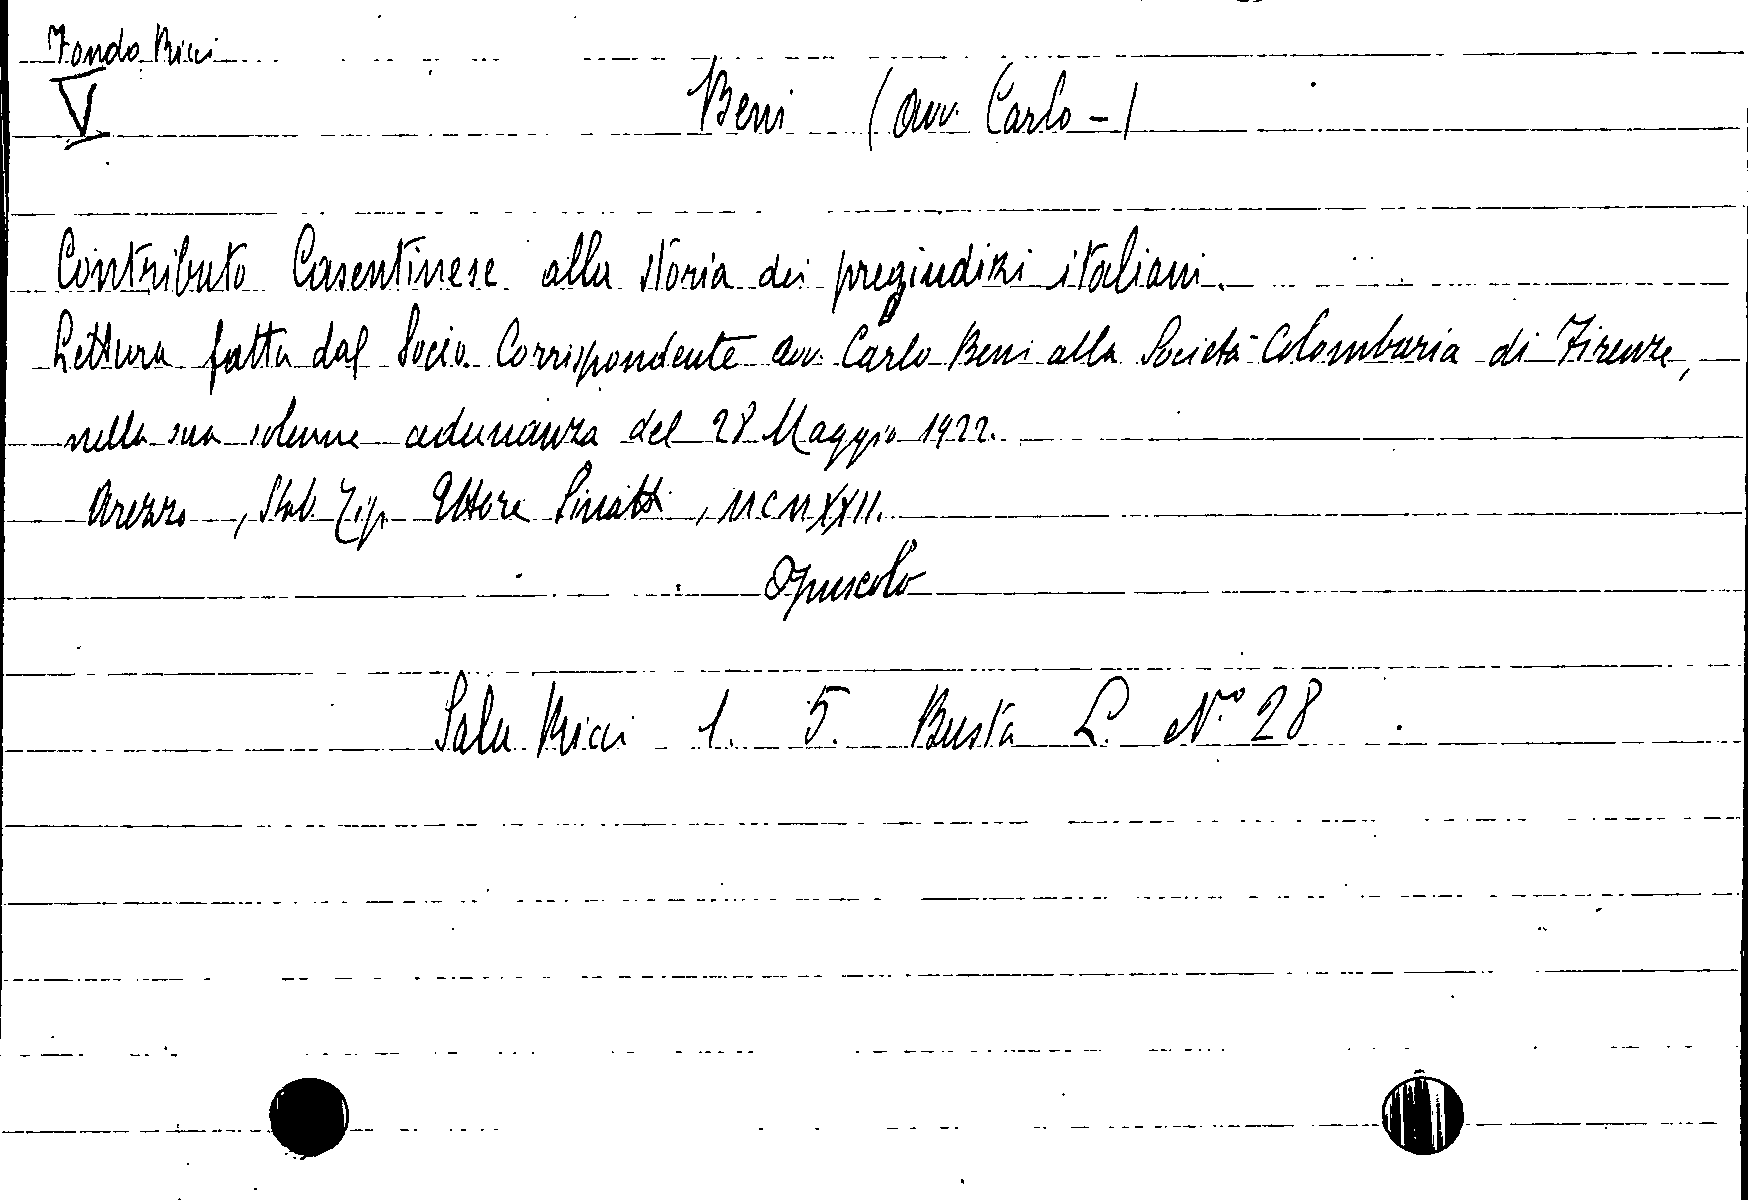 Fondo Ricci
V
Beni (avv. Carlo -)
Contributo Casentinese alla storia dei pregiudizi italiani.
Lettura fatta dal Socio Corrispondente avv. Carlo Beni alla Società Colombaria di Firenze,
nella sua solenne adunanza del 28 Maggio 1922.
Arezzo, Stab. Tip. Ettore Sinatti, MCMXXII.
Opuscolo
Sala Ricci 1. 5. Busta L. N.º 28